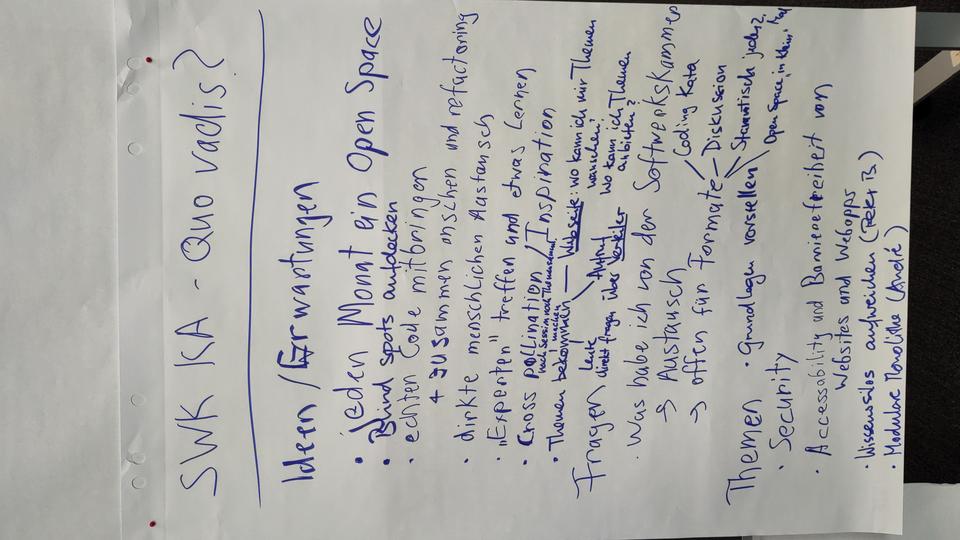 SWK KA - Quo vadis?
Ideen / Erwartungen
• Jeden Monat ein Open Space
• Blind spots aufdecken
• echten Code mitbringen
+ zusammen anschauen und refactoring
• dirkte menschlichen Austausch
• "Experten" treffen und etwas Lernen
• Cross pollination / Inspiration
nach Session nach Themen
• Themen bekommen — Webseite: wo kann ich mir Themen wünschen?
wo kann ich Themen anbieten?
Aufruf über Verteiler
Leute direkt fragen
Fragen
• Was habe ich von der Softwerkskammer
→ Austausch
→ offen für Formate — Coding Kata
Diskussion
Themen • Grundlagen vorstellen
Open Space in klein
• Security
• Accessability und Barrierefreiheit von
Websites und Webapps
• Wissenssilos aufweichen (Peter B.)
• Modulare Monolithe